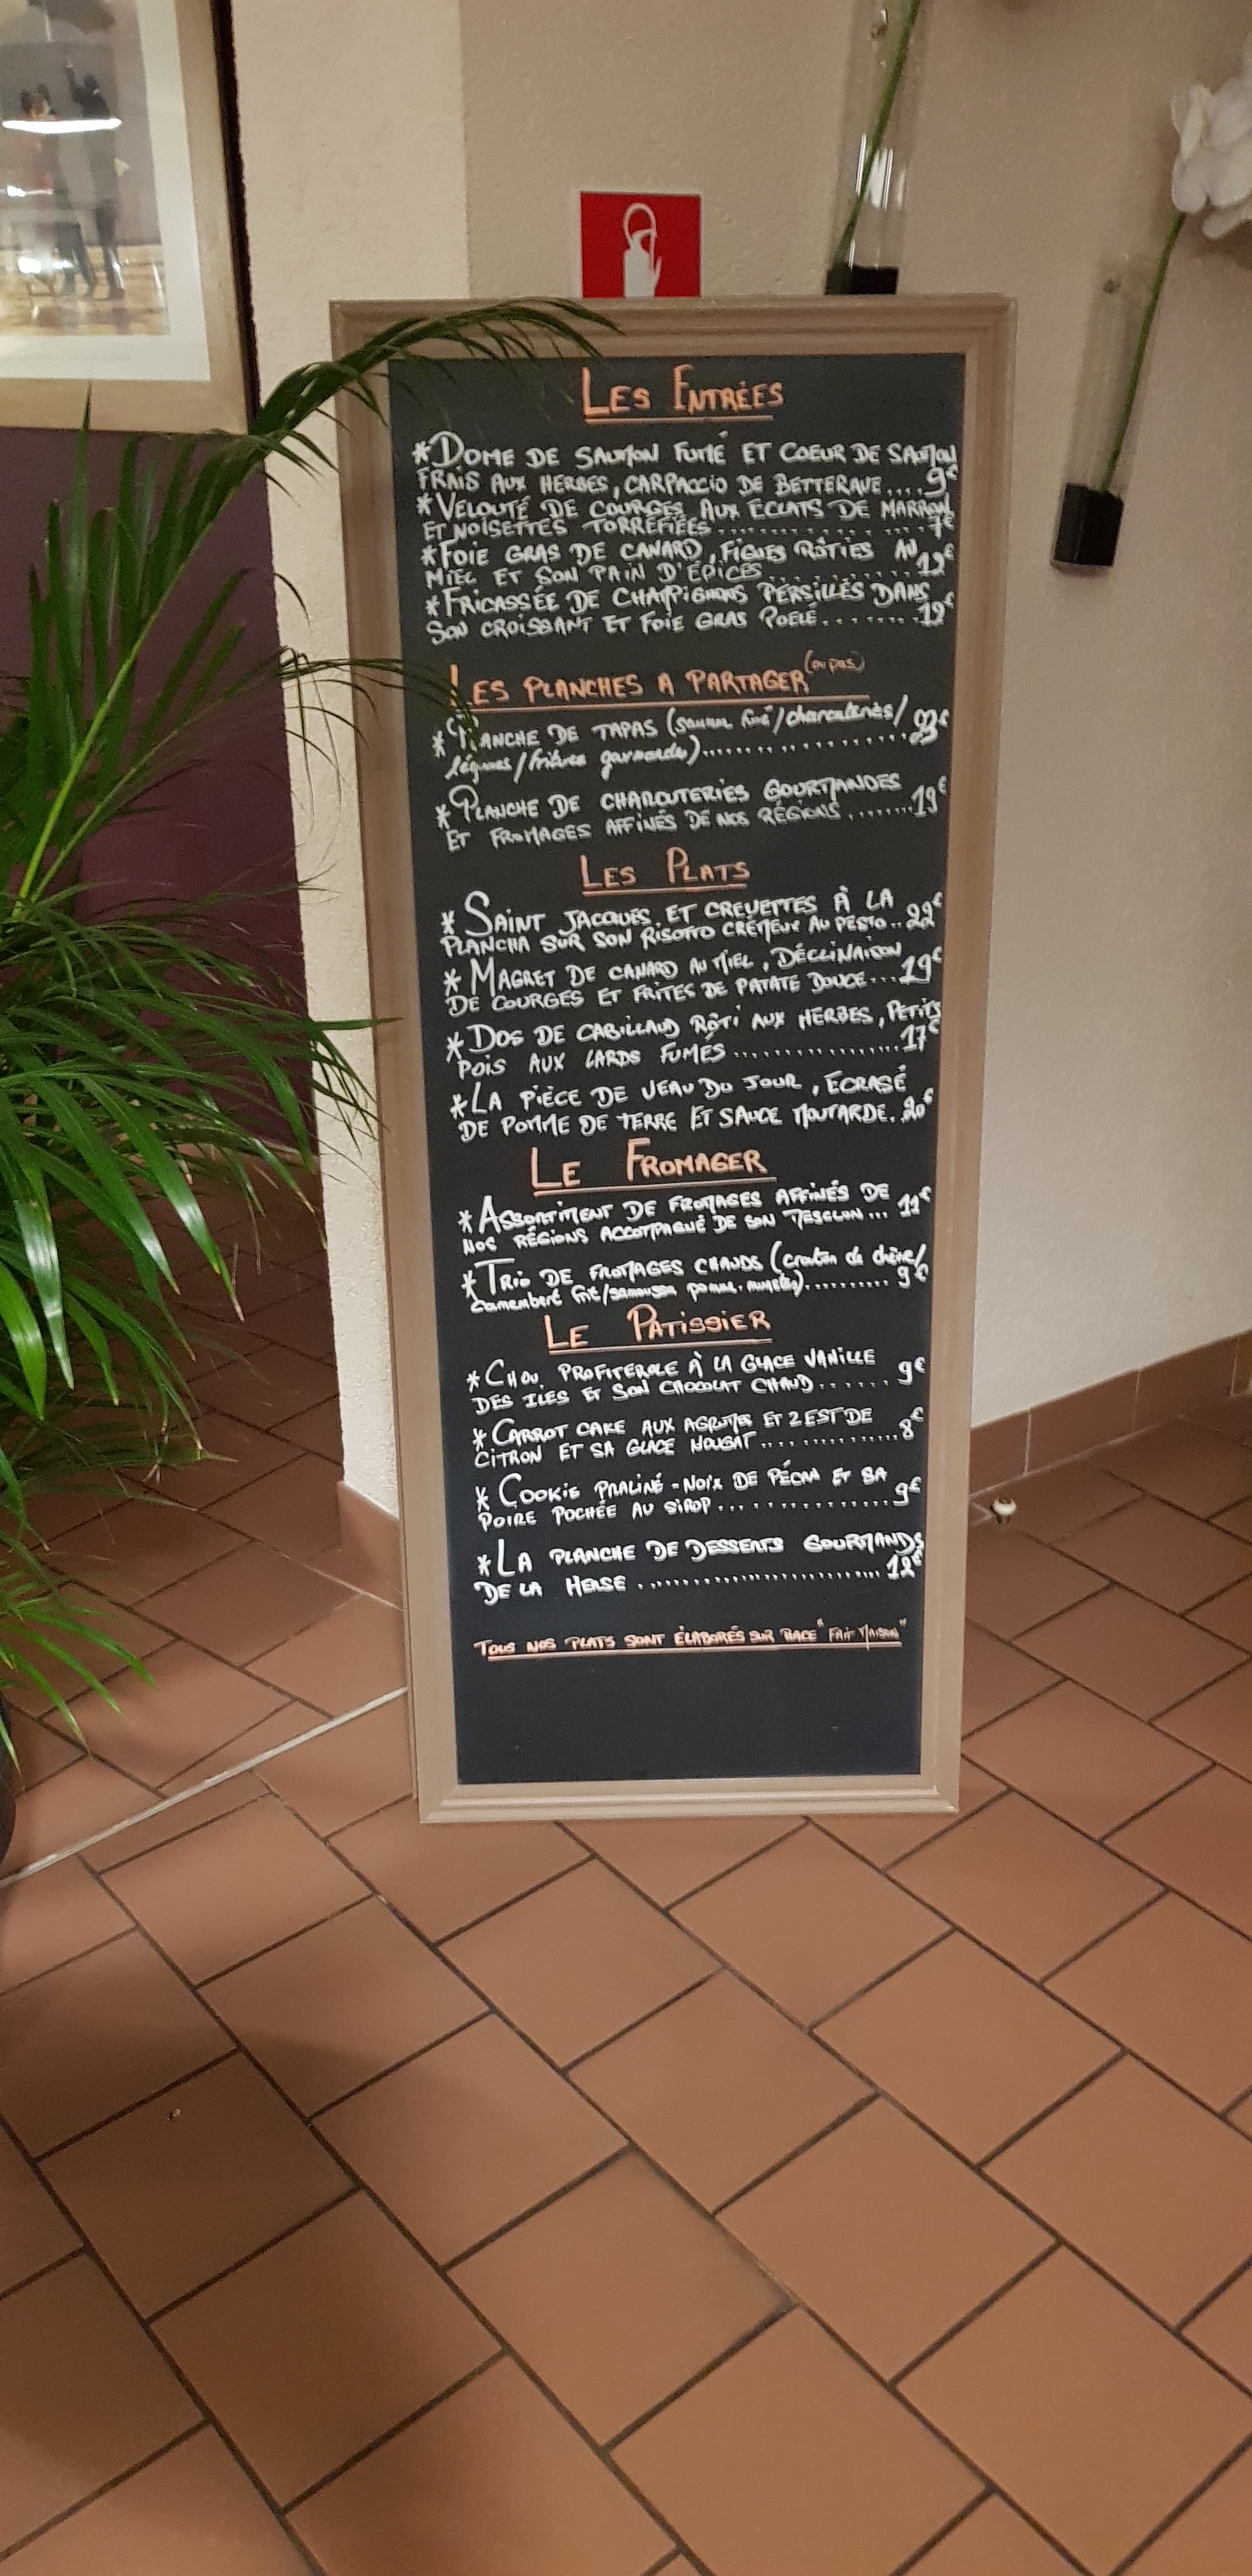 LES ENTRÉES
*DOME DE SAUMON FUMÉ ET COEUR DE SAUMON
FRAIS AUX HERBES, CARPACCIO DE BETTERAVE....9€
*VELOUTÉ DE COURGES AUX ECLATS DE MARRONS
ET NOISETTES TORREFIÉES..............7€
*FOIE GRAS DE CANARD, FIGUES RÔTIES AU
MIEL ET SON PAIN D'ÉPICES............12€
*FRICASSÉE DE CHAMPIGNONS PERSILLÉS DANS
SON CROISSANT ET FOIE GRAS POELÉ........12€
LES PLANCHES A PARTAGER (ou pas)
*PLANCHE DE TAPAS (saumon fumé/charcuteries/
légumes/fritures gourmandes)..................23€
*PLANCHE DE CHARCUTERIES GOURMANDES
ET FROMAGES AFFINÉS DE NOS RÉGIONS.......19€
LES PLATS
*SAINT JACQUES ET CREVETTES À LA
PLANCHA SUR SON RISOTTO CRÉMEUX AU PESTO..22€
*MAGRET DE CANARD AU MIEL, DÉCLINAISON
DE COURGES ET FRITES DE PATATE DOUCE...19€
*DOS DE CABILLAUD RÔTI AUX HERBES, PETITS
POIS AUX LARDS FUMÉS.................17€
*LA PIÈCE DE VEAU DU JOUR, ECRASÉ
DE POMME DE TERRE ET SAUCE MOUTARDE..20€
LE FROMAGER
*ASSORTIMENT DE FROMAGES AFFINÉS DE
NOS RÉGIONS ACCOMPAGNÉ DE SON MESCLUN... 11€
*TRIO DE FROMAGES CHAUDS (crottin de chèvre/
camembert frit/samoussa pomme,)..........9€
LE PATISSIER
*CHOU PROFITEROLE À LA GLACE VANILLE
DES ILES ET SON CHOCOLAT CHAUD...... 9€
*CARROT CAKE AUX AGRUMES ET ZEST DE
CITRON ET SA GLACE NOUGAT................8€
*COOKIE PRALINÉ-NOIX DE PÉCAN ET SA
POIRE POCHÉE AU SIROP..................9€
*LA PLANCHE DE DESSERTS GOURMANDS
DE LA HERSE..........................12€
TOUS NOS PLATS SONT ÉLABORÉS SUR PLACE "FAIT MAISON"